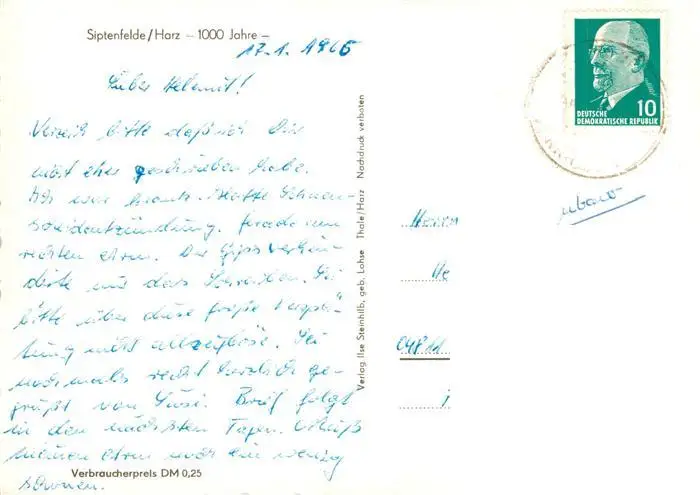 Siptenfelde/Harz – 1000 Jahre –
17.1.1966
Lieber Helmut!
Verzeih bitte daß ich Dir
nicht eher geschrieben habe.
Ich war krank. Hatte Sehnen-
scheidentzündung. Gerade am
rechten Arm. Der Gips verhin-
derte mir das Schreiben. Sei
bitte über diese große Verspä-
tung nicht allzuböse. Sei
nochmals recht herzlich ge-
grüßt von Susi. Brief folgt
in den nächsten Tagen. Muß
meinen Arm noch ein wenig
schonen.
Verbraucherpreis DM 0,25
Verlag Ilse Steinhilb, geb. Lohse Thale/Harz Nachdruck verboten
10
DEUTSCHE
DEMOKRATISCHE REPUBLIK
Herrn
He